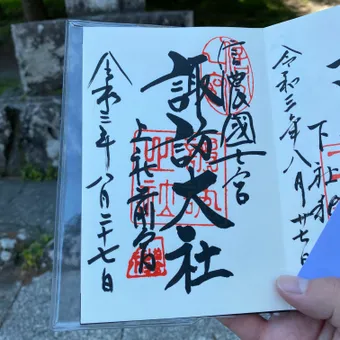 信濃國一宮
諏訪大社
上社前宮
令和三年八月二十七日
令和三年八月廿七日
下社